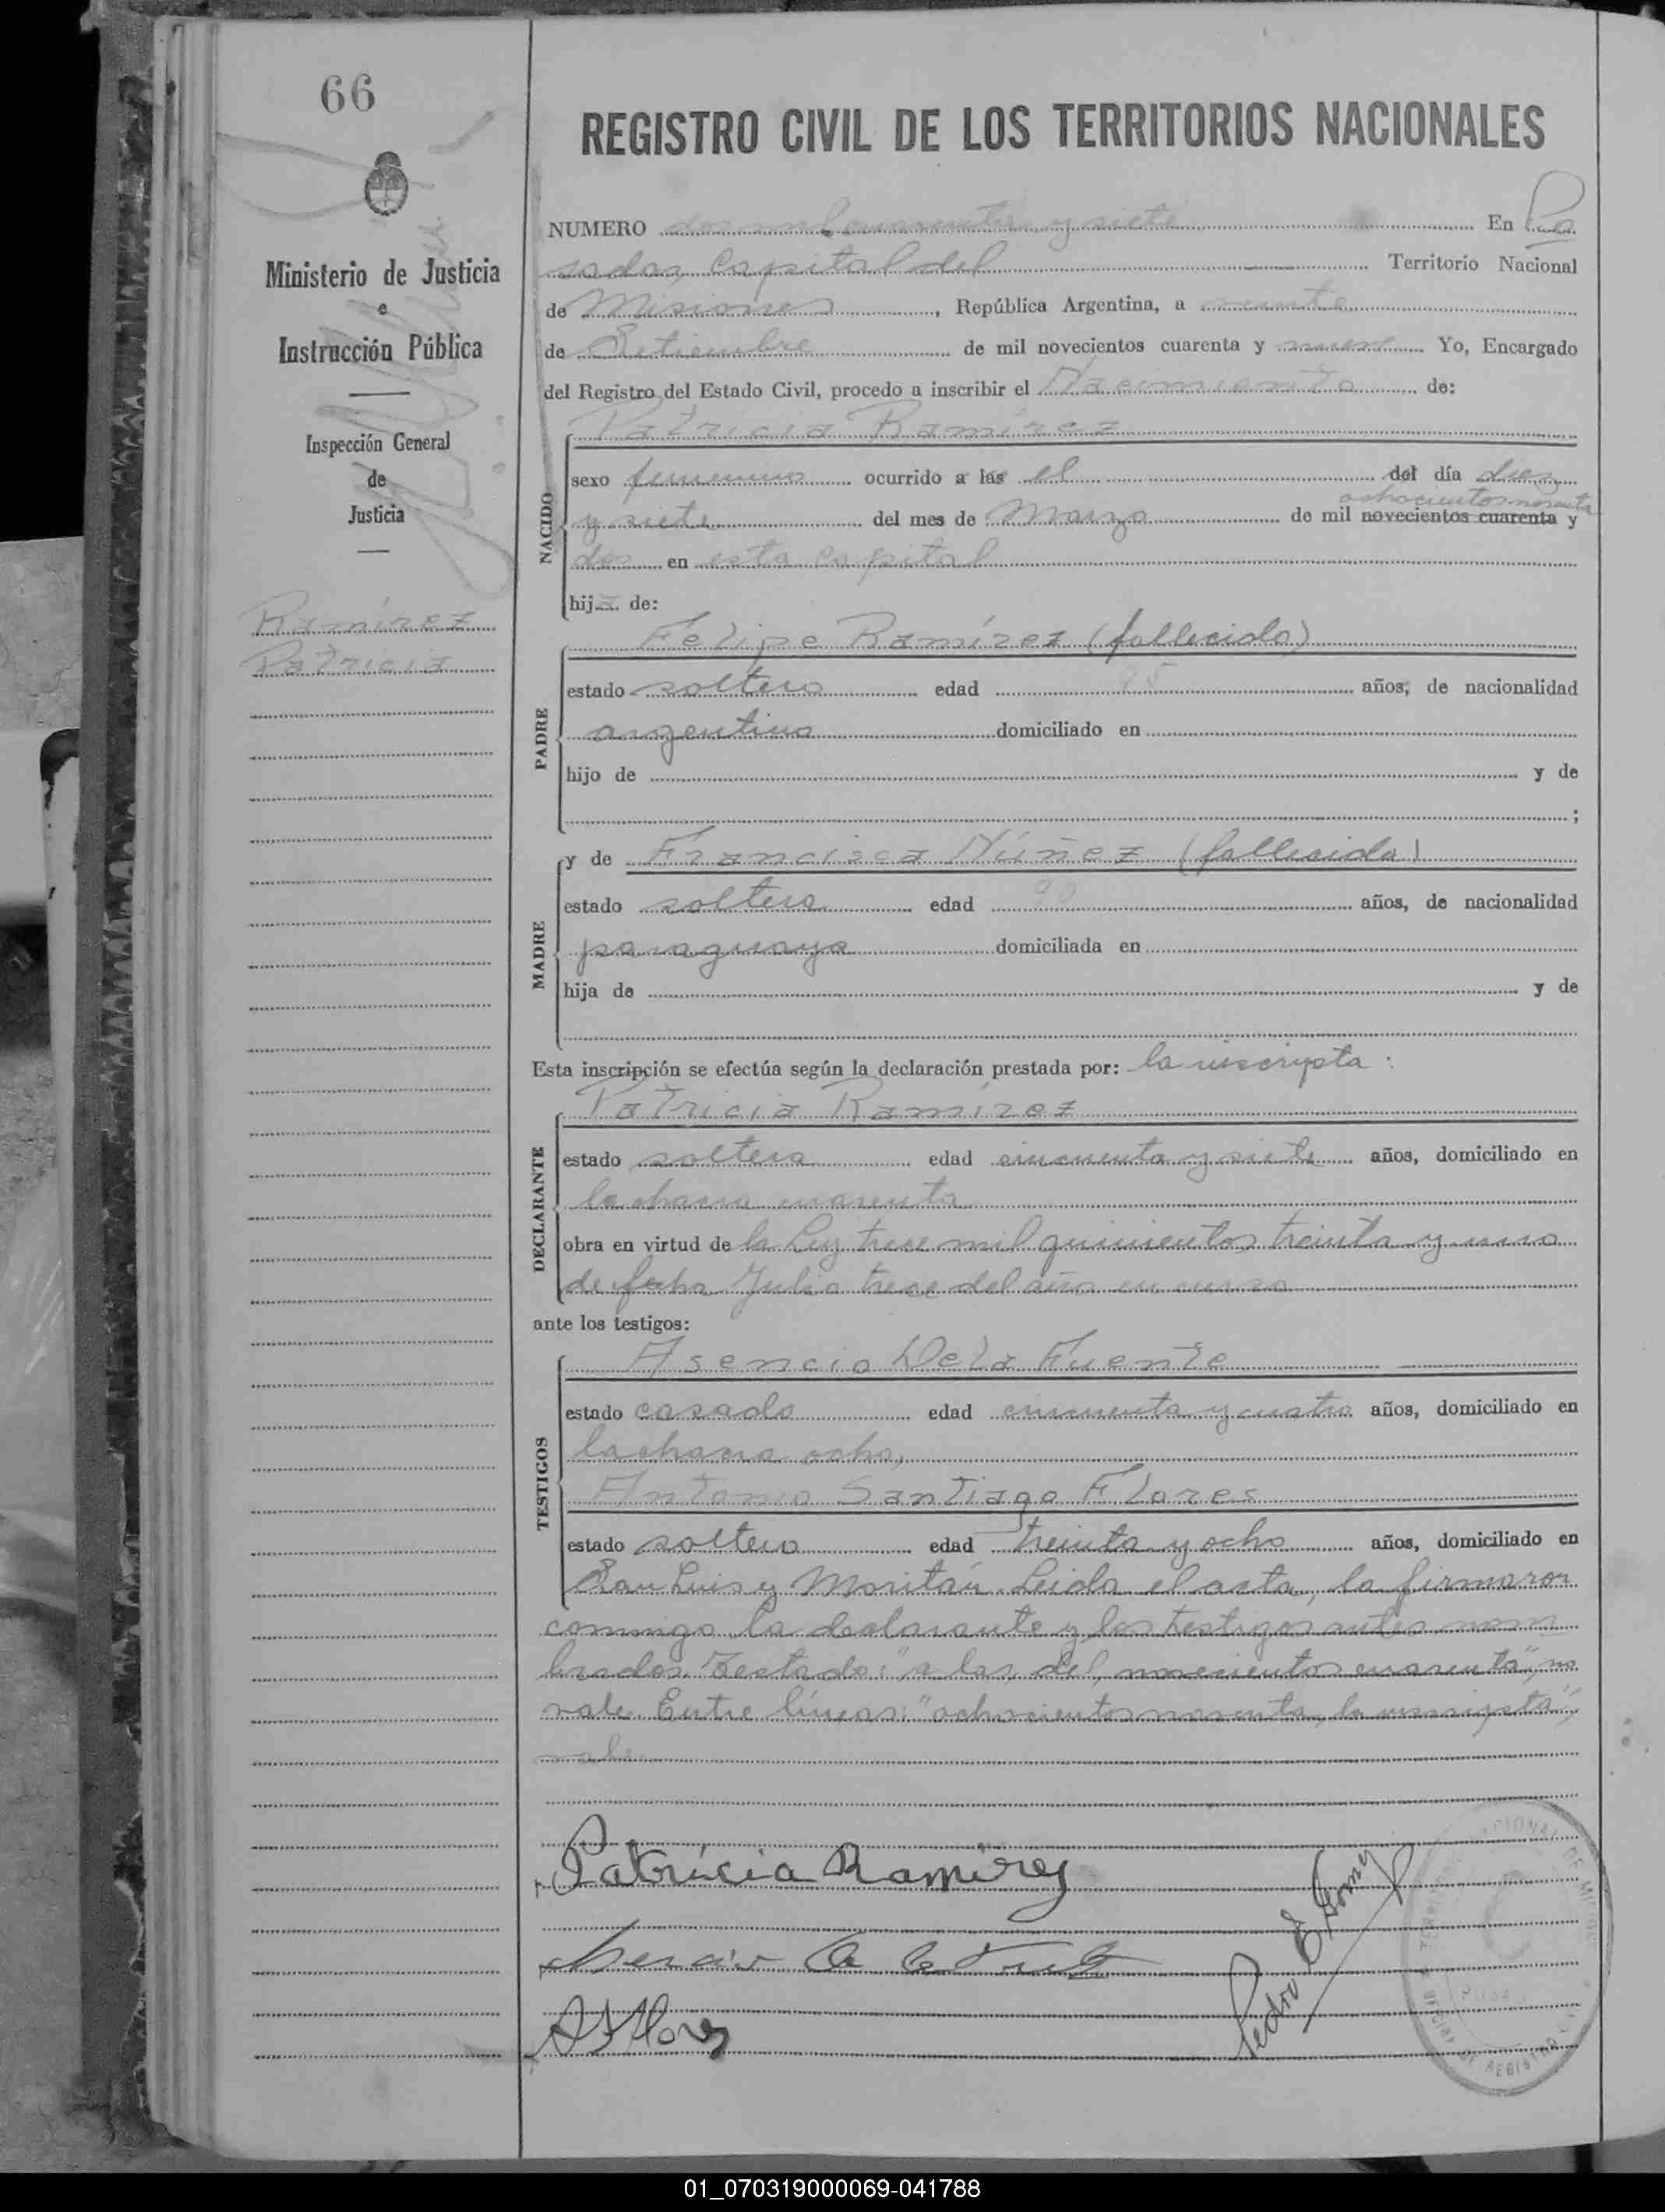 66
REGISTRO CIVIL DE LOS TERRITORIOS NACIONALES
Ministerio de Justicia
e
Instrucción Pública
Inspección General
de
Justicia
Ramírez
Patricia
NUMERO dos mil cuarenta y siete En Po
sadas, Capital del Territorio Nacional
de Misiones, República Argentina, a veinte
de Setiembre de mil novecientos cuarenta y nueve Yo, Encargado
del Registro del Estado Civil, procedo a inscribir el Nacimiento de:
NACIDO
Patricia Ramírez
sexo femenino ocurrido a las el del día diez
ochocientos noventa
y siete del mes de Marzo de mil novecientos cuarenta y
dos en esta capital
hija de:
PADRE
Felipe Ramírez (fallecido)
estado soltero edad 95 años, de nacionalidad
argentino domiciliado en
hijo de y de
;
MADRE
y de Francisca Núñez (fallecida)
estado soltera edad 90 años, de nacionalidad
paraguaya domiciliada en
hija de y de
Esta inscripción se efectúa según la declaración prestada por: la inscripta:
DECLARANTE
Patricia Ramírez
estado soltera edad cincuenta y siete años, domiciliado en
la chacra cuarenta
obra en virtud de la Ley trece mil quinientos treinta y uno
de fecha Julio trece del año en curso
ante los testigos:
TESTIGOS
Asencio De la Fuente
estado casado edad cincuenta y cuatro años, domiciliado en
la chacra ocho,
Antonio Santiago Flores
estado soltero edad treinta y ocho años, domiciliado en
San Luis y Moritán. Leida el acta, la firmaron
conmigo la declarante y los testigos antes nom
brados. Testado: "a las, del, novecientos cuarenta", no
vale. Entre líneas: "ochocientos noventa, la inscripta",
vale.
Patricia Ramirez
Asencio de la Fuente
A S Flores
Pedro E
01_070319000069-041788